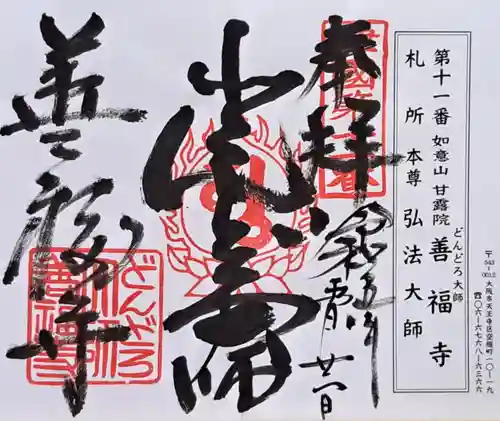 第十一番 如意山 甘露院 善福寺
どんどろ大師
札所本尊 弘法大師
〒543-0012 大阪市天王寺区空堀町一〇-一九
☎〇六-六七六八-六三六六
奉拝
令和五年
廿一日
弘法大師
善福寺
どんどろ